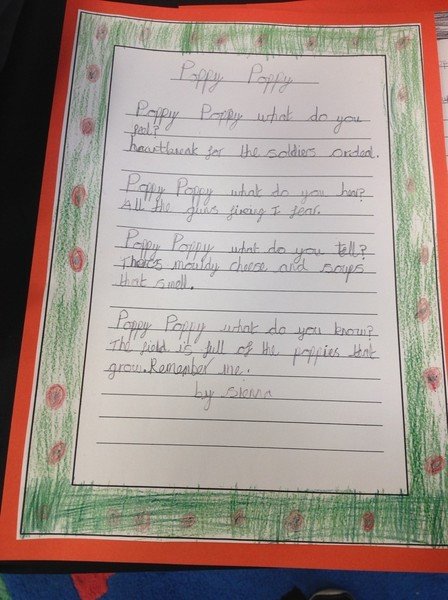 Poppy Poppy
Poppy Poppy what do you
feel?
heartbreak for the soldiers ordeal.
Poppy Poppy what do you hear?
All the guns firing I fear.
Poppy Poppy what do you tell?
There's mouldy cheese and soups
that smell.
Poppy Poppy what do you know?
The field is full of the poppies that
grow. Remember me.
by sienna